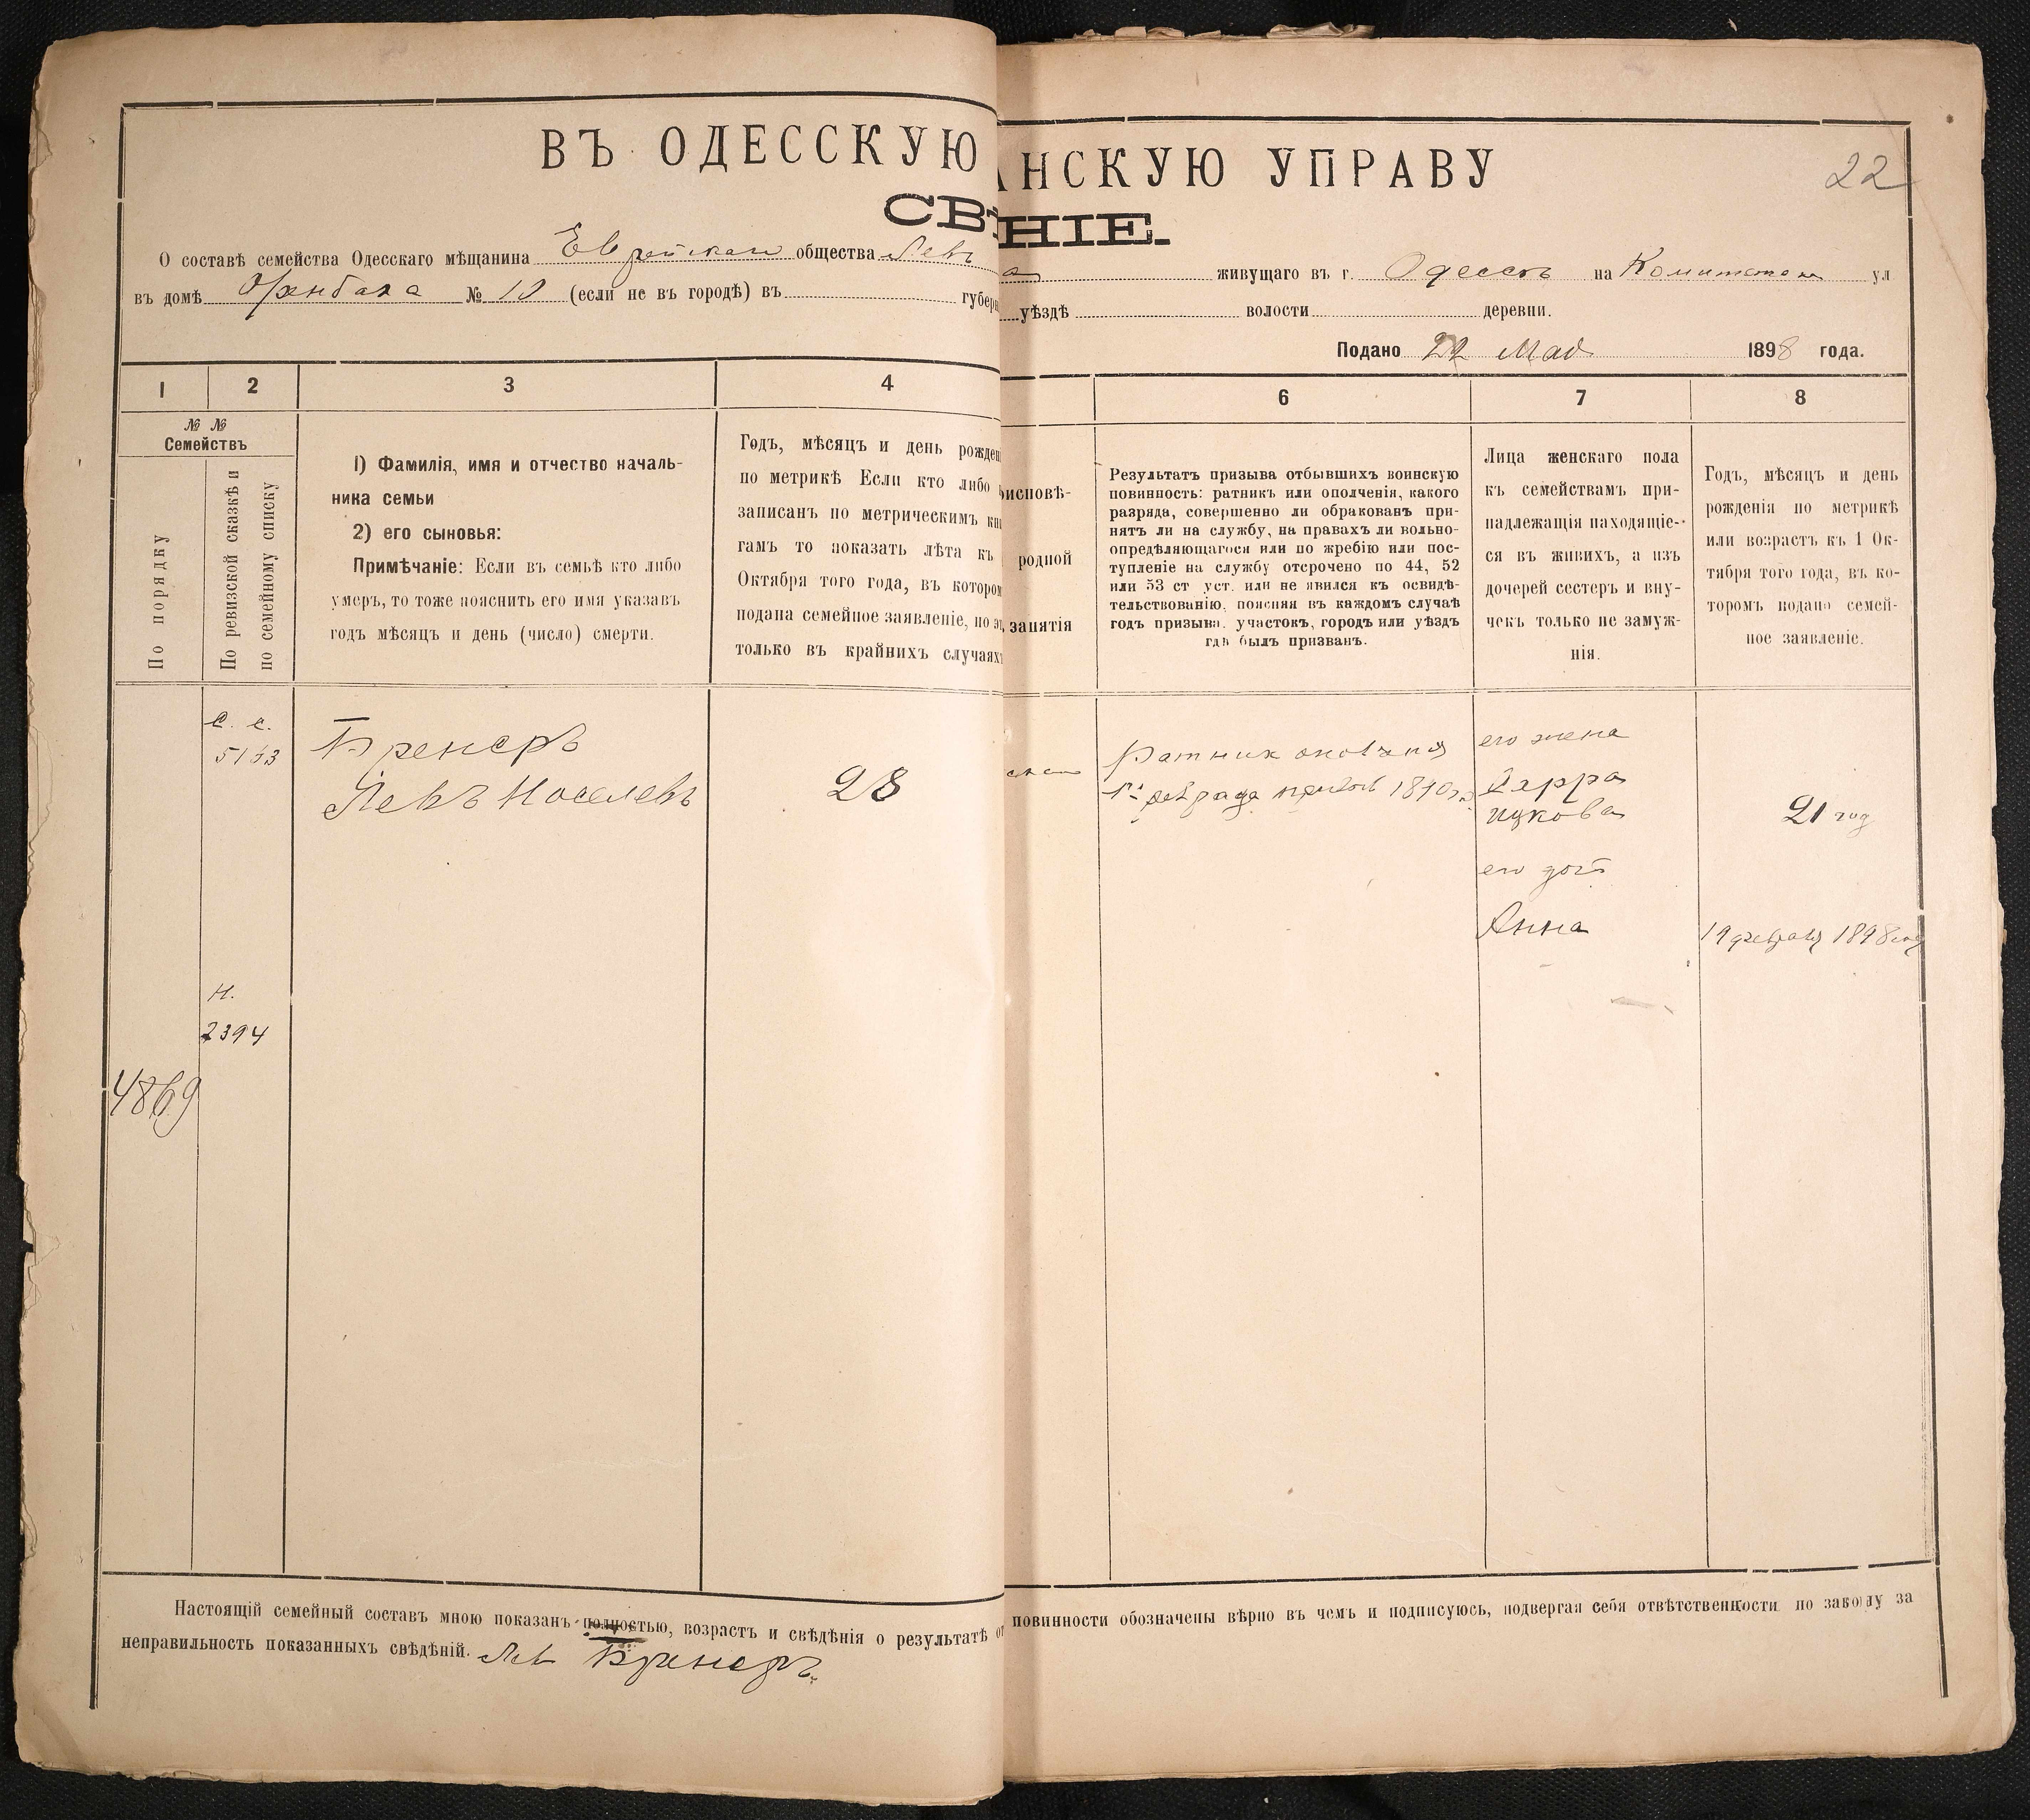 ВЪ ОДЕССКУЮ АНСКУЮ УПРАВУ
22
СВѢНІЕ.
О составѣ семейства Одесскаго мѣщанина Еврейскаго общества Левъ а живущаго въ г. Одессѣ на Комитетск ул
въ домѣ № 10 (если не въ городѣ) въ губерн уѣздѣ волости деревни.
Подано 22 Мая 1898 года.
1 2 3 4 6 7 8
№ №
Семействъ
По порядку
По ревизской сказкѣ и
по семейному списку
1) Фамилія, имя и отчество началь-
ника семьи
2) его сыновья:
Примѣчаніе: Если въ семьѣ кто либо
умеръ, то тоже пояснить его имя указавъ
годъ мѣсяцъ и день (число) смерти.
Годъ, мѣсяцъ и день рожден
по метрикѣ Если кто либо
записанъ по метрическимъ кни
гамъ то показать лѣта къ
Октября того года, въ котором
подана семейное заявленіе, но эт
только въ крайнихъ случаяхъ
исповѣ-
родной
занятія
Результатъ призыва отбывшихъ воинскую
повинность: ратникъ или ополченія, какого
разряда, совершенно ли обракованъ при-
нятъ ли на службу, на правахъ ли вольно-
опредѣляющагося или по жребію или пос-
тупленіе на службу отсрочено по 44, 52
или 53 ст уст. или не явился къ освидѣ-
тельствованію, поясняя въ каждомъ случаѣ
годъ призыва, участокъ, городъ или уѣздъ
гдѣ былъ призванъ.
Лица женскаго пола
къ семействамъ при-
надлежащія находящіе-
ся въ живихъ, а изъ
дочерей сестеръ и вну-
чекъ только не замуж-
нія.
Годъ, мѣсяцъ и день
рожденія по метрикѣ
или возрастъ къ 1 Ок-
тября того года, въ ко-
торомъ подано семей-
ное заявленіе.
с. с.
Бренеръ
Левъ Носелевъ
28
Ратник ополчения
1й разряда призыв 1890 г.
его жена
Ицкова
21 год
его доч
Анна
19 февраля 1898 год
н.
2394
4869
Настоящій семейный составъ мною показанъ полностью, возрастъ и свѣдѣнія о результатѣ от повинности обозначены вѣрно въ чемъ и подписуюсь, подвергая себя отвѣтственности по закону за
неправильность показанныхъ свѣдѣній. Лев Бренеръ.